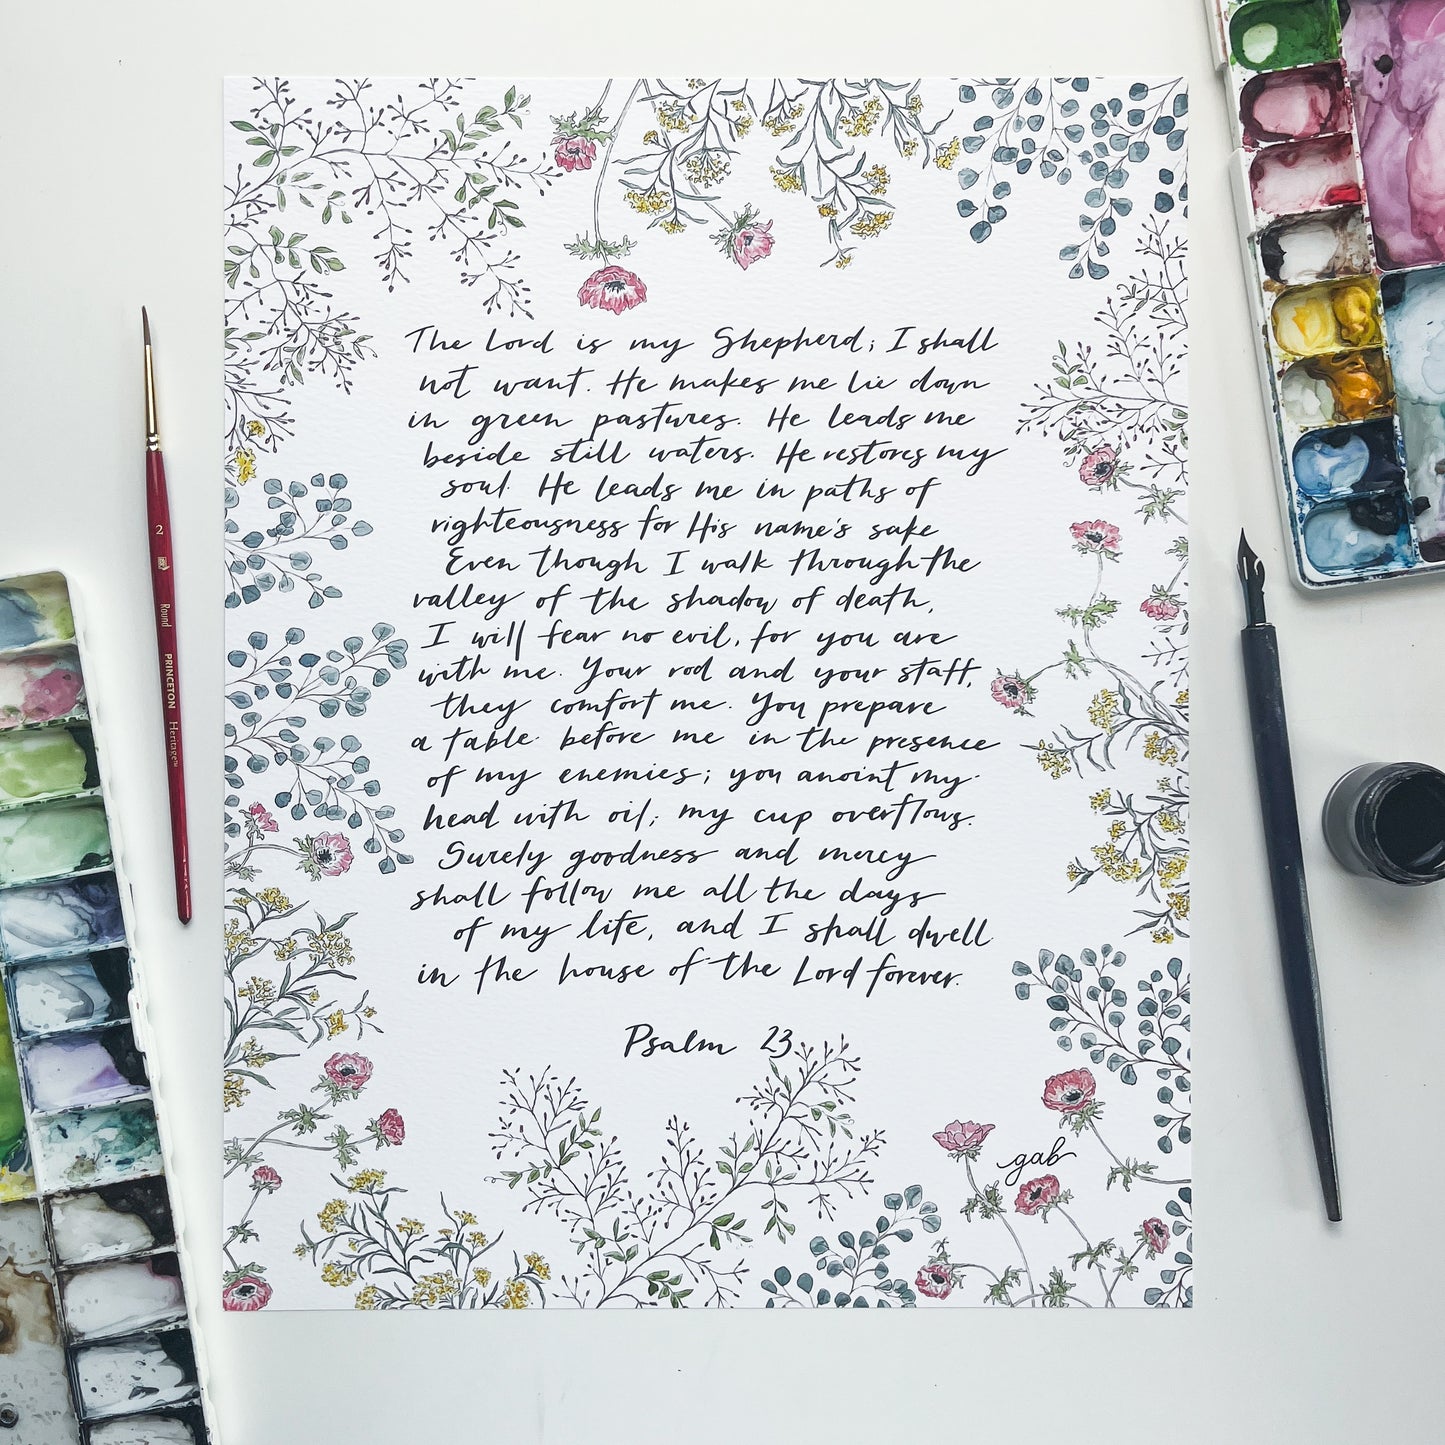 The Lord is my Shepherd; I shall
not want. He makes me lie down
in green pastures. He leads me
beside still waters. He restores my
soul. He leads me in paths of
righteousness for His name's sake
Even though I walk through the
valley of the shadow of death,
I will fear no evil, for you are
with me. Your rod and your staff,
they comfort me. You prepare
a table before me in the presence
of my enemies; you anoint my
head with oil; my cup overflows.
Surely goodness and mercy
shall follow me all the days
of my life, and I shall dwell
in the house of the Lord forever.
Psalm 23
gab
2
Round
PRINCETON
Heritage™